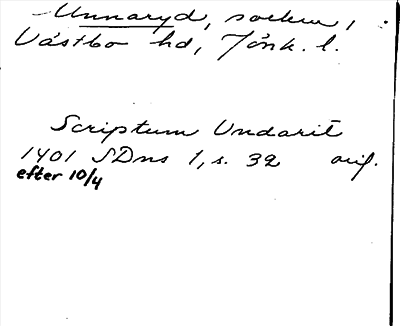 Unnaryd, socken,
Västbo hd, Jönk. l.
Scriptum Undarit
1401 SDns 1, s. 32 orig.
efter 10/4